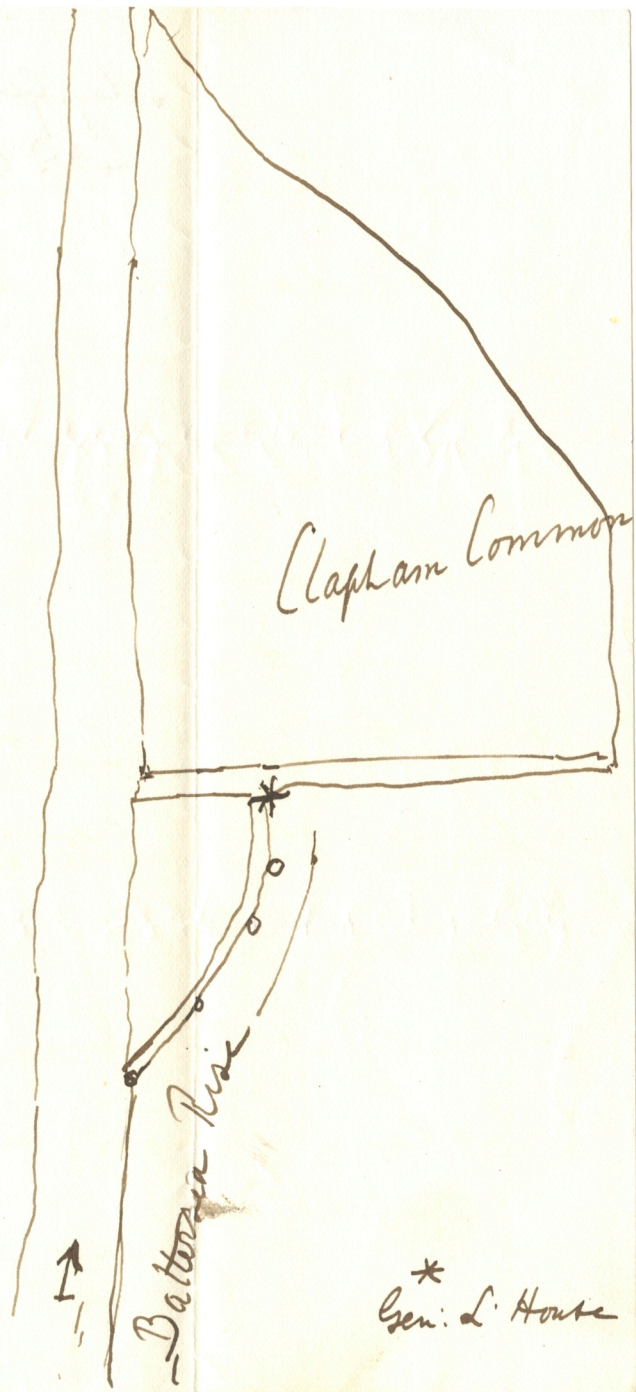 Clapham Common
Battersea Rise
*
Gen: L' House